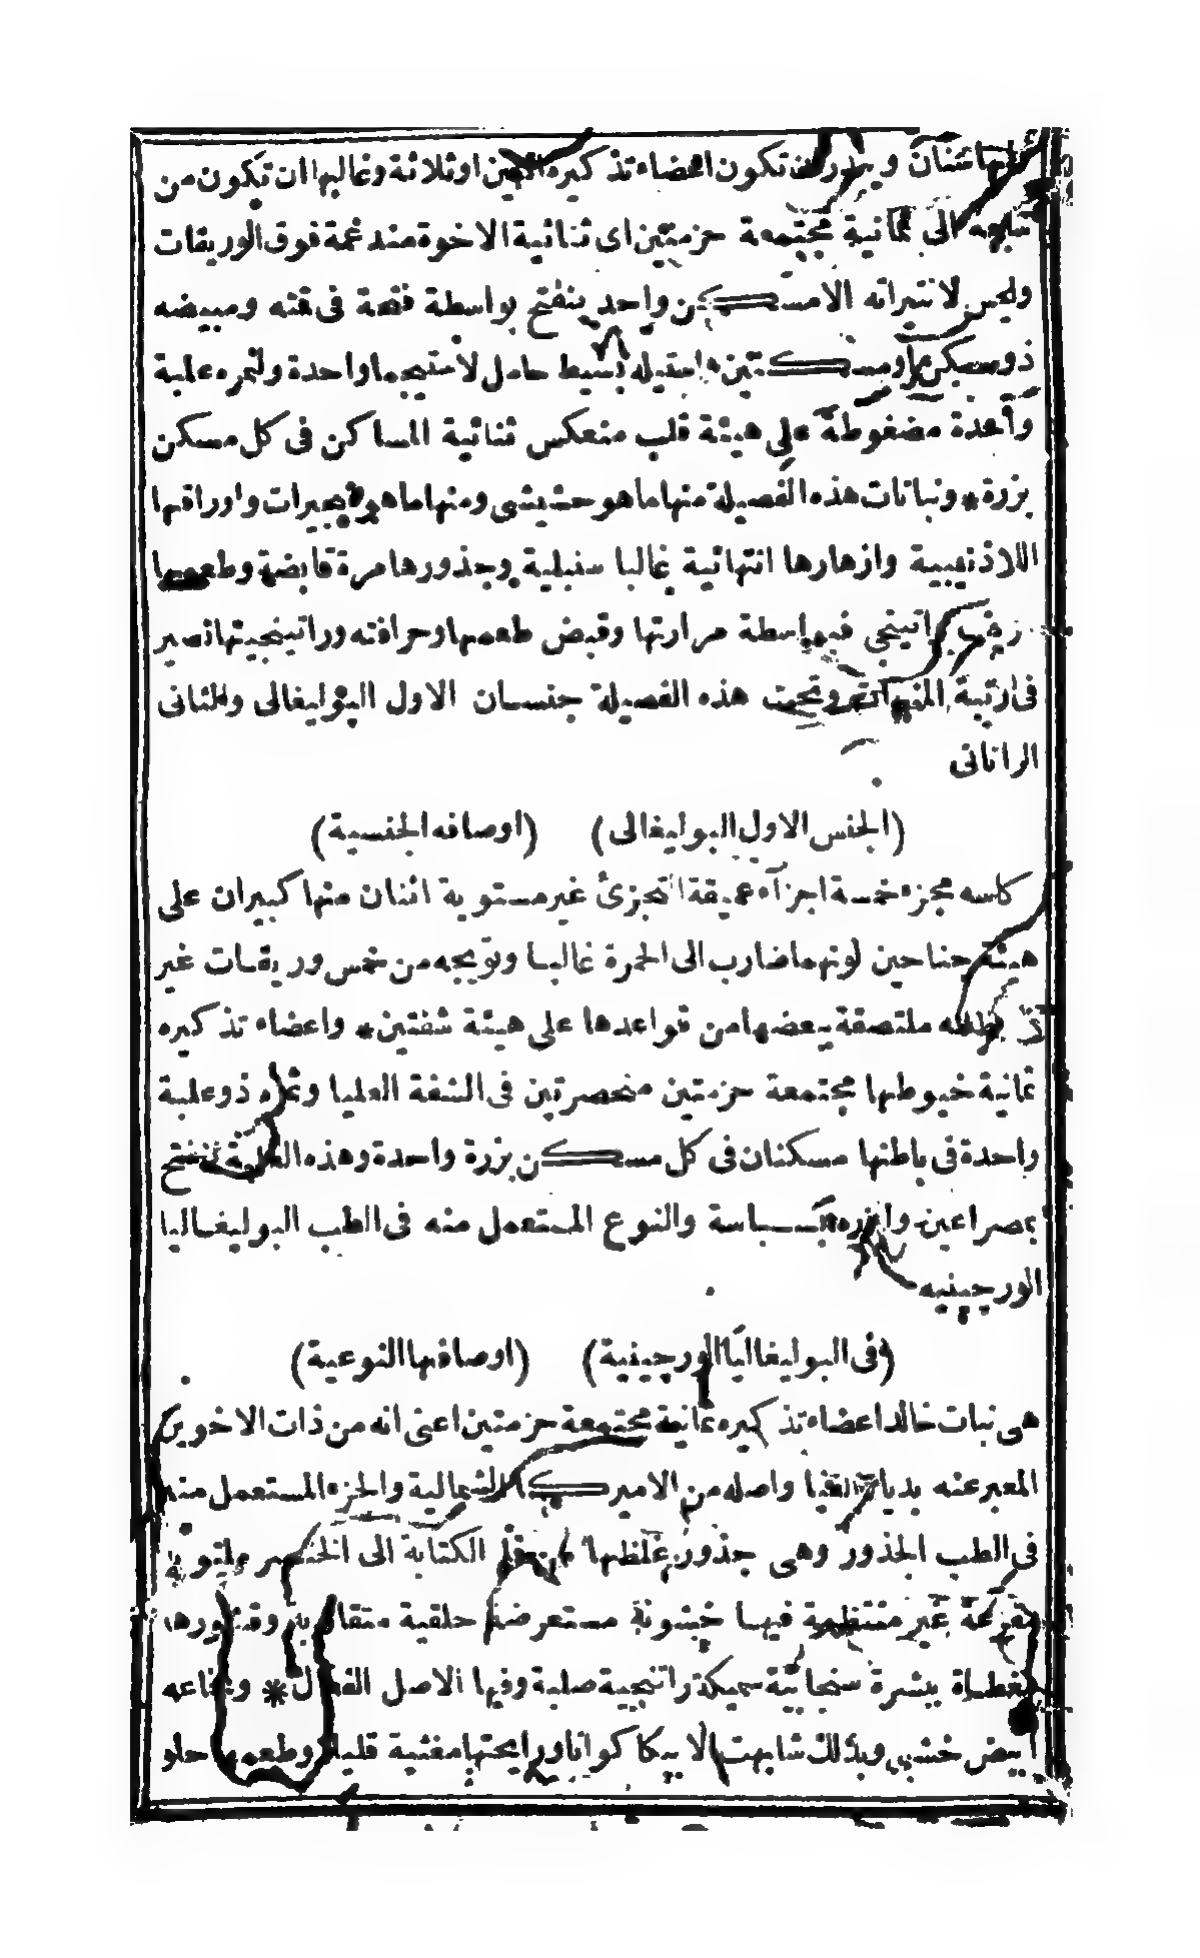 اثنتان ويندران تكون اعضاء تذكيره اثنين او ثلاثة وغالبها ان تكون من
سبعة الى ثمانية مجتمعة حزمتين اى ثنائية الاخوة مندغمة فوق الوريقات
وليس لانتيراته الا مسكن واحد ينفتح بواسطة فتحة فى قمته ومبيضه
ذو مسكن او مسكنين واستيله بسيط حامل لاستيجما واحدة وثمره علبة
واحدة مضغوطة على هيئة قلب منعكس ثنائية المساكن فى كل مسكن
بزرة * ونباتات هذه الفصيلة منها ما هو حشيشى ومنها ما هو شجيرات واوراقها
اللاذنيبية وازهارها انتهائية غالبا سنبلية وجذورها مرة قابضة وطعمها
راتينجى فبواسطة مرارتها وقبض طعمها وحرافته وراتينجيتها تصير
فى رتبة المنبهات وتحت هذه الفصيلة جنسان الاول البوليغالى والثانى
الراتانى
(الجنس الاول البوليغالى) (اوصافه الجنسية)
كاسه مجزء خمسة اجزاء عميقة التجزئ غير مستوية اثنان منها كبيران على
هيئة جناحين لونهما ضارب الى الحمرة غالبا وتويجه من خمس وريقات غير
ملتصقة ببعضها من قواعدها على هيئة شفتين * واعضاء تذكيره
ثمانية خيوطها مجتمعة حزمتين منحصرتين فى الشفة العليا وثمره ذو علبة
واحدة فى باطنها مسكنان فى كل مسكن بزرة واحدة وهذه العلبة تنفتح
بمصراعين وبزره بسباسة والنوع المستعمل منه فى الطب البوليغاليا
الورجينيه
(فى البوليغاليا الورجينية) (اوصافها النوعية)
هى نبات خالد اعضاء تذكيره ثمانية مجتمعة حزمتين اعنى انه من ذات الاخوين
المعبر عنه بدياديلفيا واصله من الاميركا الشمالية والجزء المستعمل منه
فى الطب الجذور وهى جذور غلظها من قلم الكتابة الى الخنصر ملتوية
متفرعة غير منتظمة فيها خشونة مستعرضة حلقية متقاربة وقشورها
مغطاة ببشرة سنجابية سميكة راتنجية صلبة وفيها الاصل الفعال * ونخاعه
ابيض خشبى وبذلك شابهت الايپيكاكوانا ورايحتها مغثية قليلا وطعمها حلو